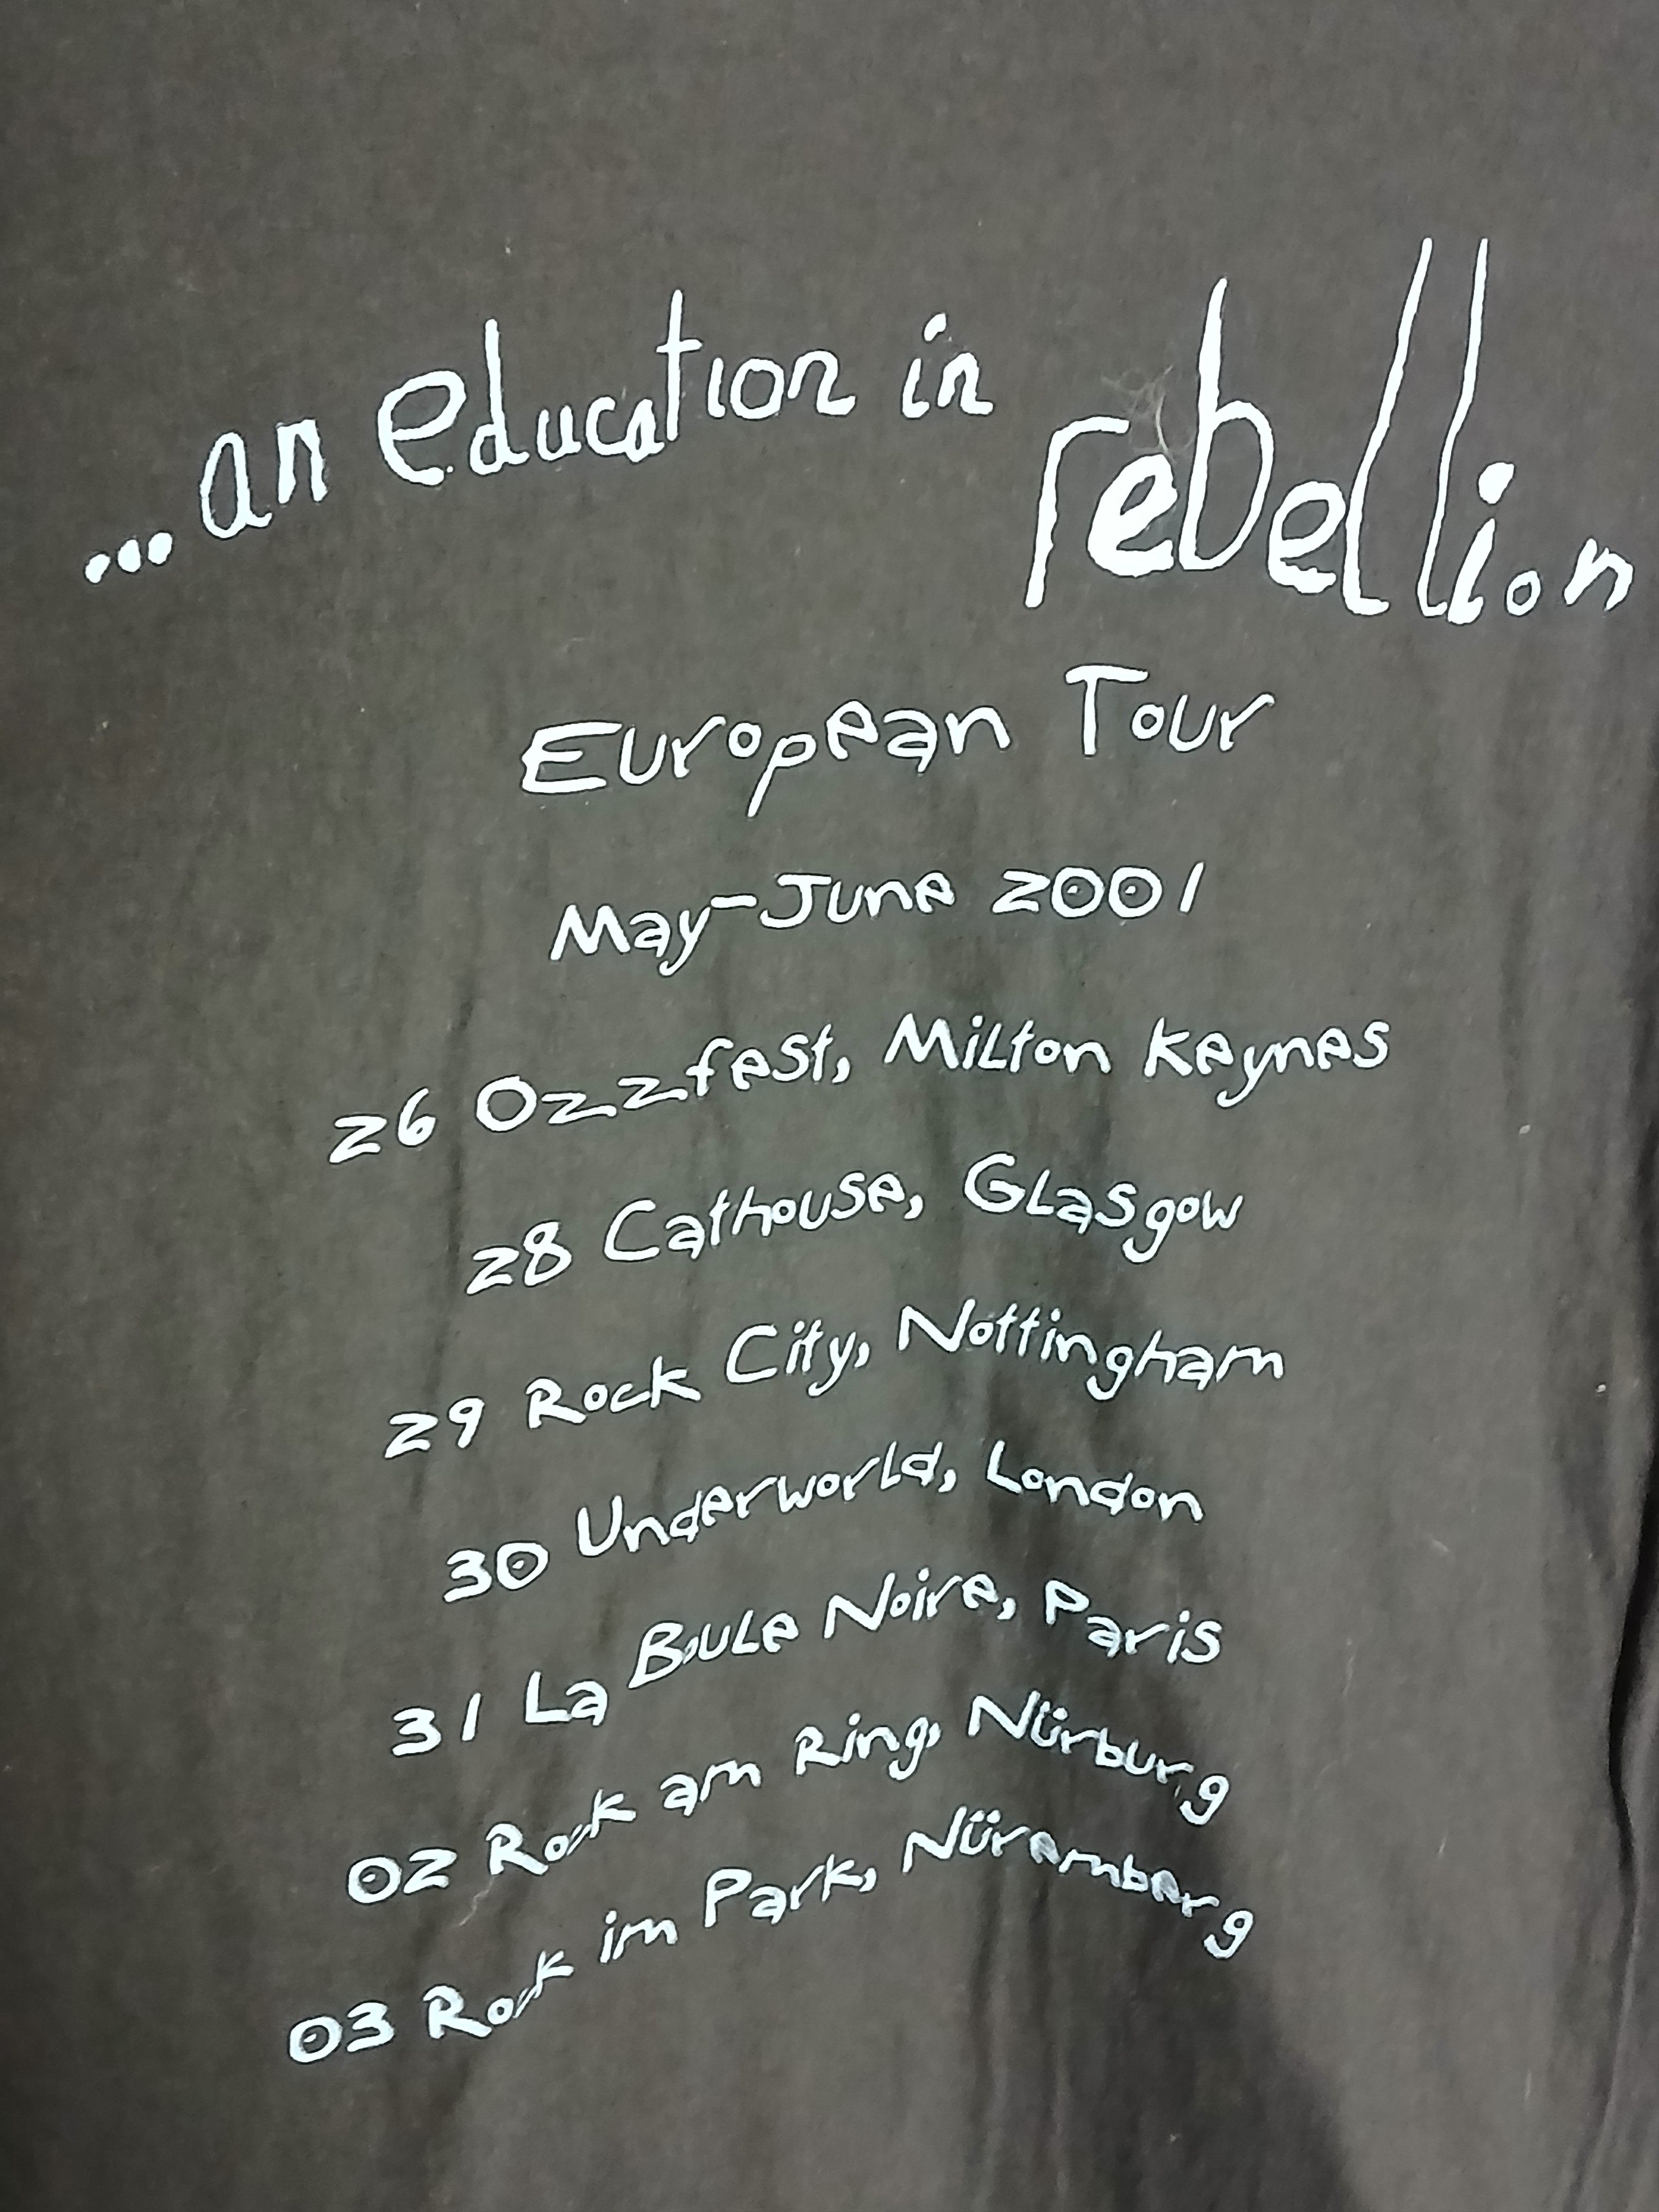 ...an education in rebellion
European Tour
May-June 2001
26 Ozzfest, Milton Keynes
28 Cathouse, Glasgow
29 Rock City, Nottingham
30 Underworld, London
31 La Boule Noire, Paris
02 Rock am Ring, Nürburg
03 Rock im Park, Nüremberg